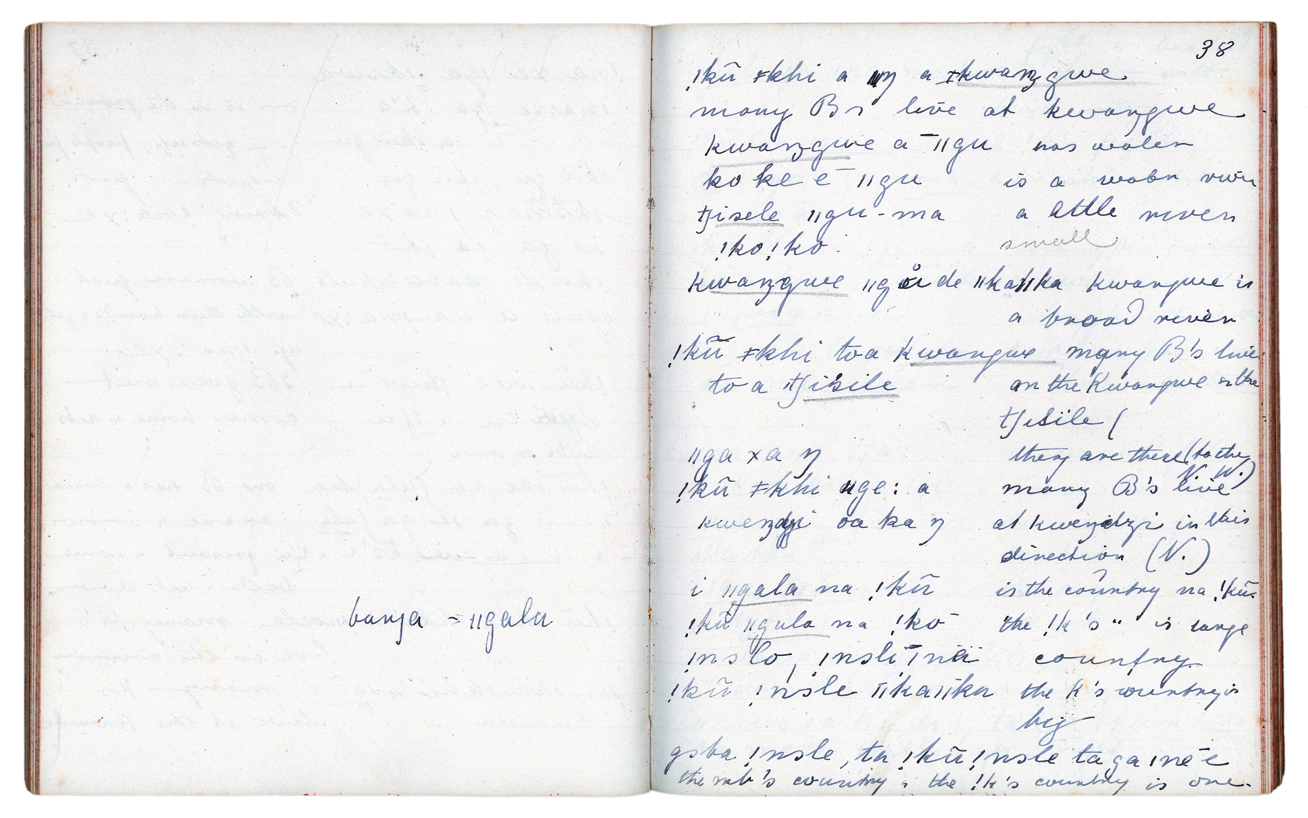 banja = ǁgalu
38
!kũ ǂkhi a ŋ a ǂkwaŋgwe
many Bs live at kwaŋgwe
kwaŋgwe a ǁgu has water
koke e ǁgu is a water river
tʃisele ǁgu-ma a little river
!ko!ko. small
kwaŋgwe ǁgu de ǁkaǁka kwangwe is
a broad river
!kũ ǂkhi toa kwangwe many B's live
to a tʃisile on the Kwangwe & the
tʃisile (
ǁga xa ŋ they are there (to the
N.W.)
!kũ ǂkhi ge: a many B's live
kweŋdʒi oa ka ŋ at kweŋdzi in this
direction (N.)
i ǁgala na !kũ is the country na !kũ
!kũ ǁgula na !kō the !k's " is large
country
!kũ !nsle ǁkaǁka the k's country is
big
gsba !nsle, ta !kũ !nsle ta ga ǀne'e
the mb's country & the !k's country is one.